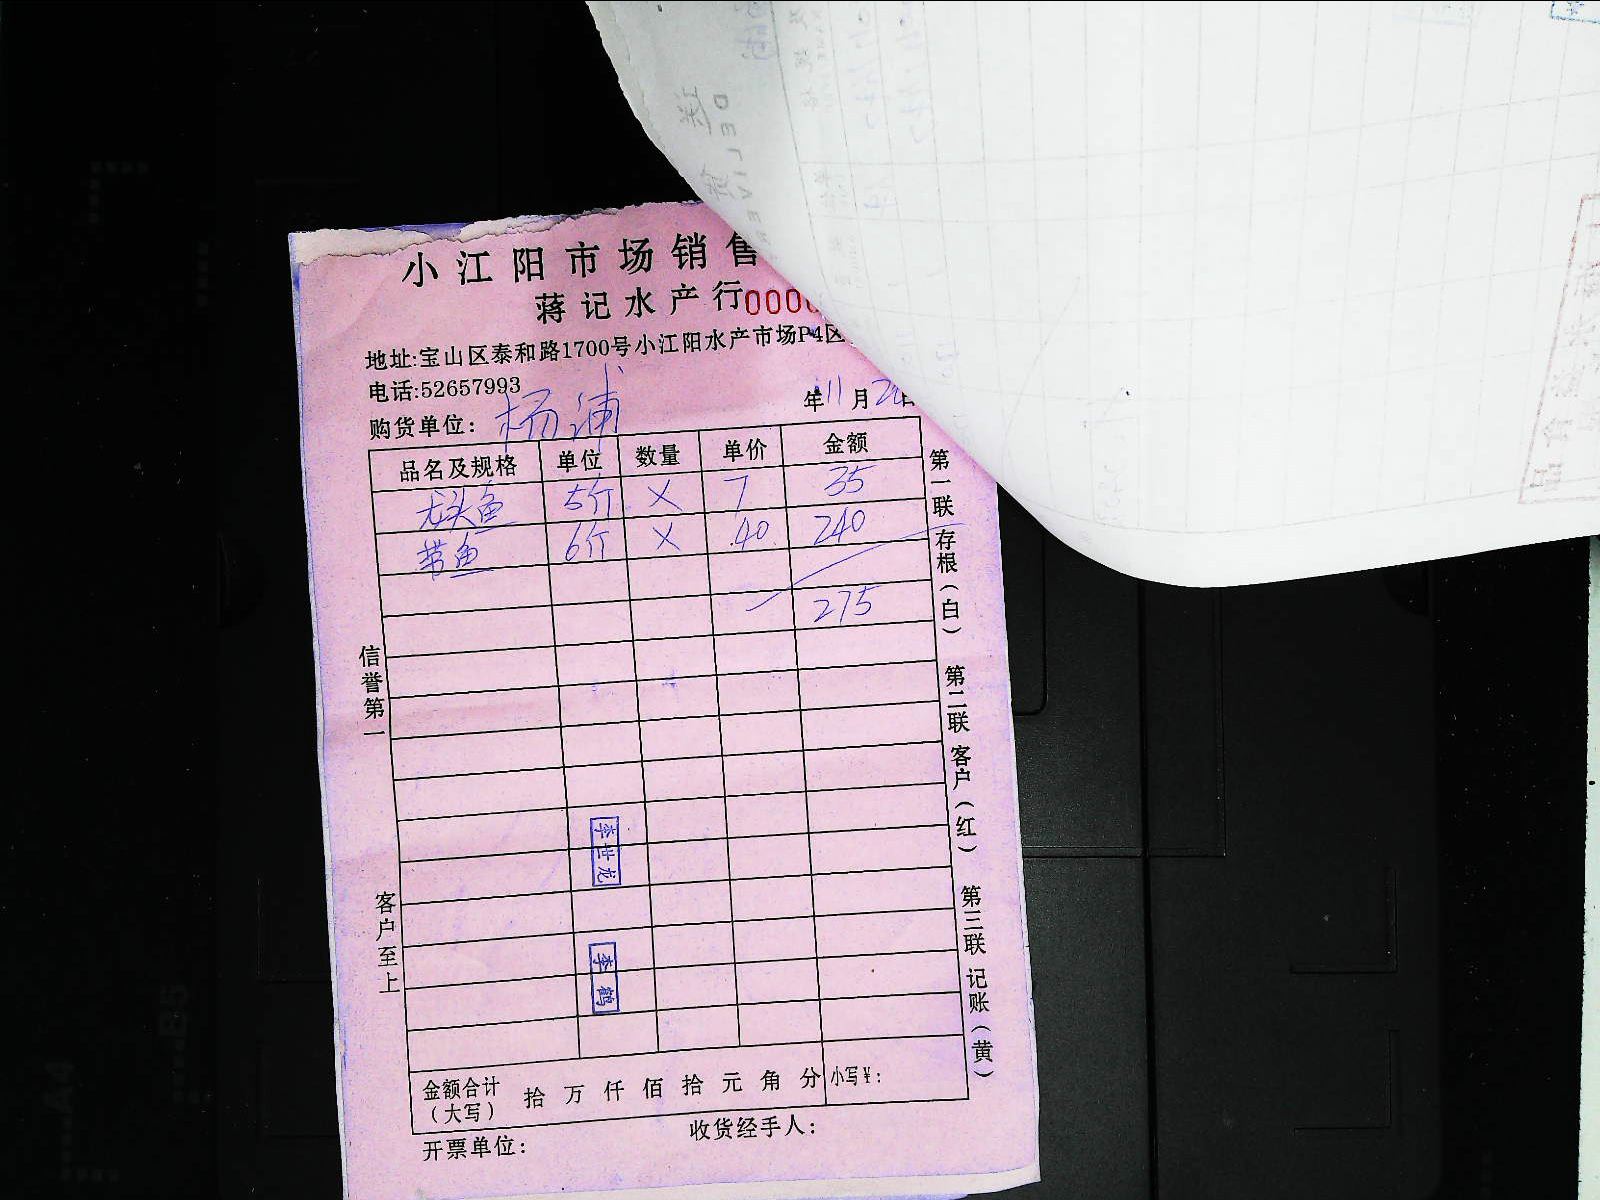 小江阳市场销售
蒋记水产行 0000
地址:宝山区泰和路1700号小江阳水产市场P4区
电话:52657993
购货单位: 杨浦 年11月 日
品名及规格 单位 数量 单价 金额
龙头鱼 5斤 × 7 35
带鱼 6斤 × 40 240
275
信誉第一
客户至上
李世龙
李鹤
第一联 存根(白) 第二联 客户(红) 第三联 记账(黄)
金额合计(大写) 拾 万 仟 佰 拾 元 角 分 小写¥:
开票单位: 收货经手人: